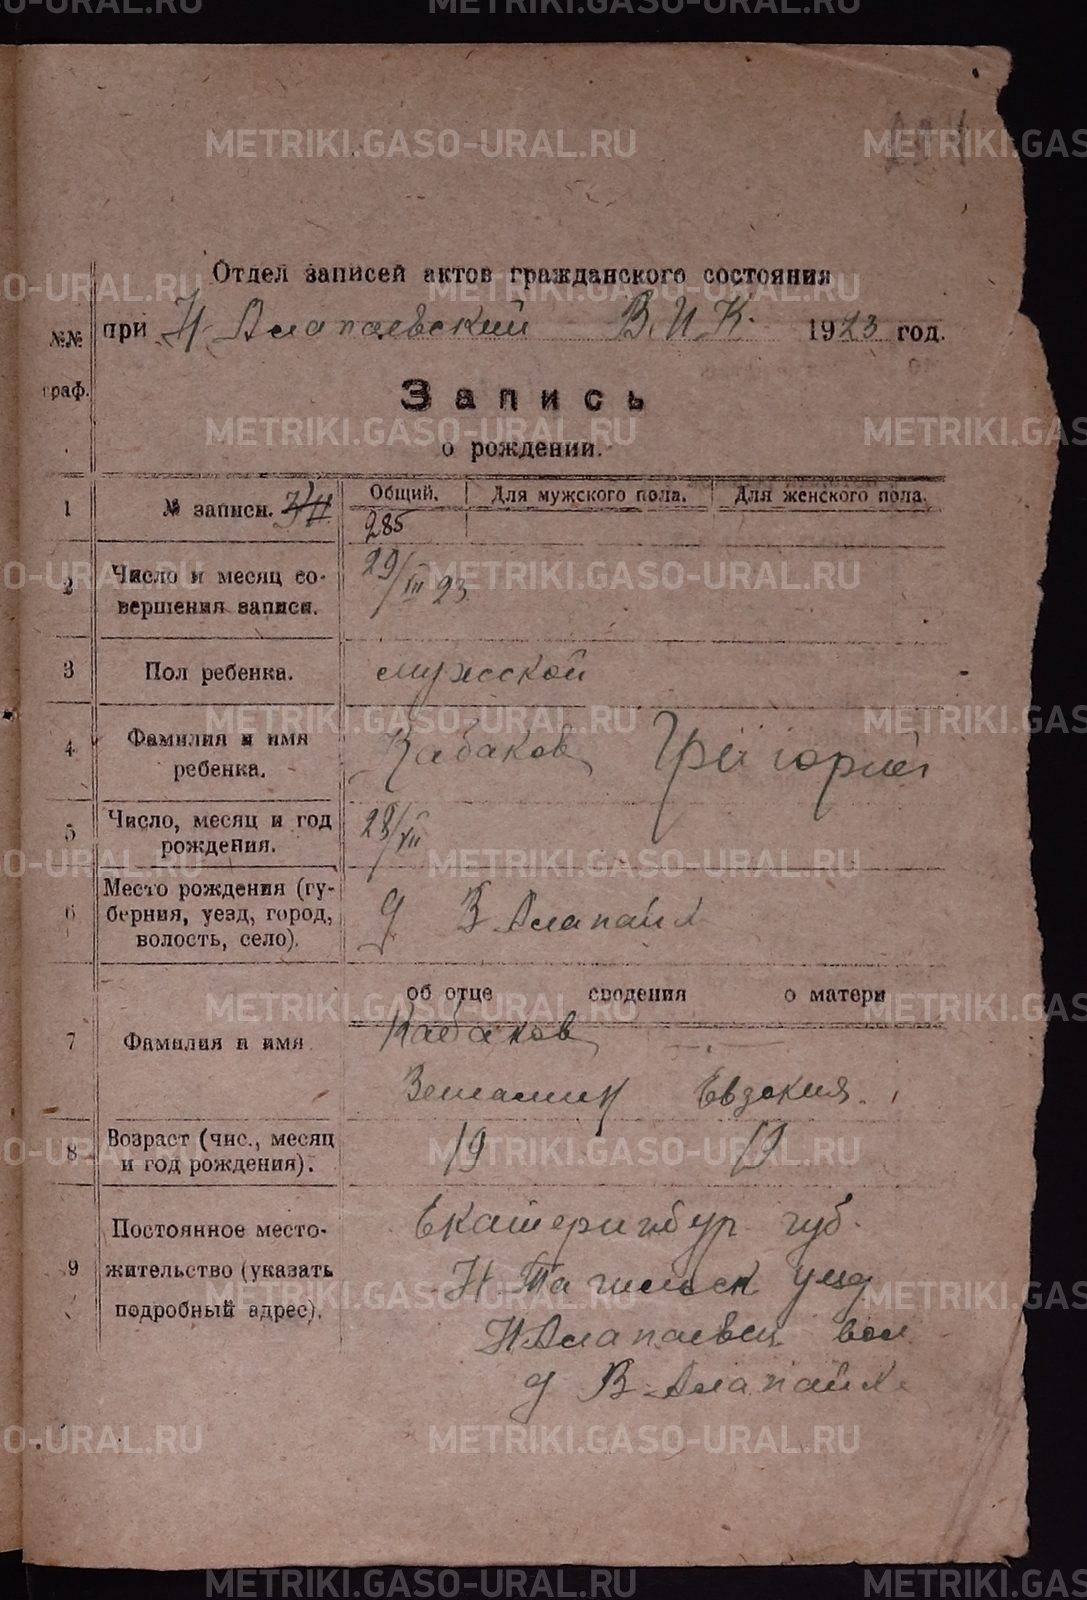 METRIKI.GASO-URAL.RU
Отдел записей актов гражданского состояния
при Н Алапаевский В.И.К. 1923 год.
№№
граф.
Запись
о рождении.
1 № записи. Общий. Для мужского пола. Для женского пола.
285
2 Число и месяц со-
вершения записи.
29/VII 23
3 Пол ребенка. мужской
4 Фамилия и имя
ребенка.
Кабаков Григорий
5 Число, месяц и год
рождения.
28/VII
6 Место рождения (гу-
берния, уезд, город,
волость, село).
д В Алапаих
об отце сведения о матери
7 Фамилия и имя
Кабаков
Вениамин Евдокия
8 Возраст (чис., месяц
и год рождения).
19 19
9 Постоянное место-
жительство (указать
подробный адрес).
Екатеринбур. губ.
Н. Тагильск уезд
Н Алапаевск вол
д В-Алапаих